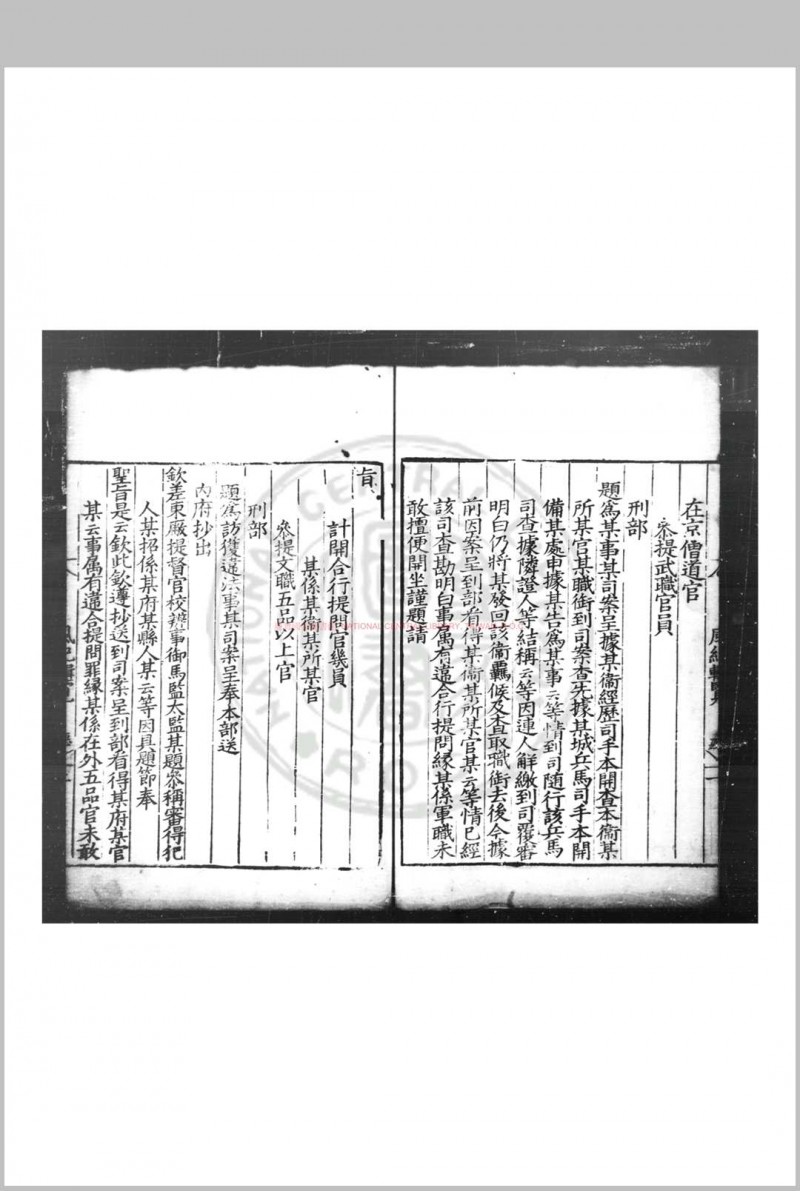 在京僧道官
叅提武職官員
刑部
題為某事某司案呈據某衞經歷司手本開查本衞某
所某官某職銜到司案查先據某城兵馬司手本開
備某處申據某告為某事云等情到司隨行該兵馬
司查據隣證人等結稱云等因連人解繳到司覆審
明白仍將某發回該衞羈候及查取職銜去後今據
前因案呈到部看得某衞某所某官某云等情已經
該司查勘明白事属有違合行提問緣某係軍職未
敢擅便開坐謹題請
旨
計開合行提問官幾員
某係某衞某所某官
叅提文職五品以上官
刑部
題為訪獲違法事某司案呈奉本部送
內府抄出
欽差東厰提督官校辨事御馬監太監某題叅稱審得犯
人某招係某府某縣人某云等因具題節奉
聖旨是云欽此欽遵抄送到司案呈到部看得某府某官
某云事属有違合提問罪緣某係在外五品官未敢